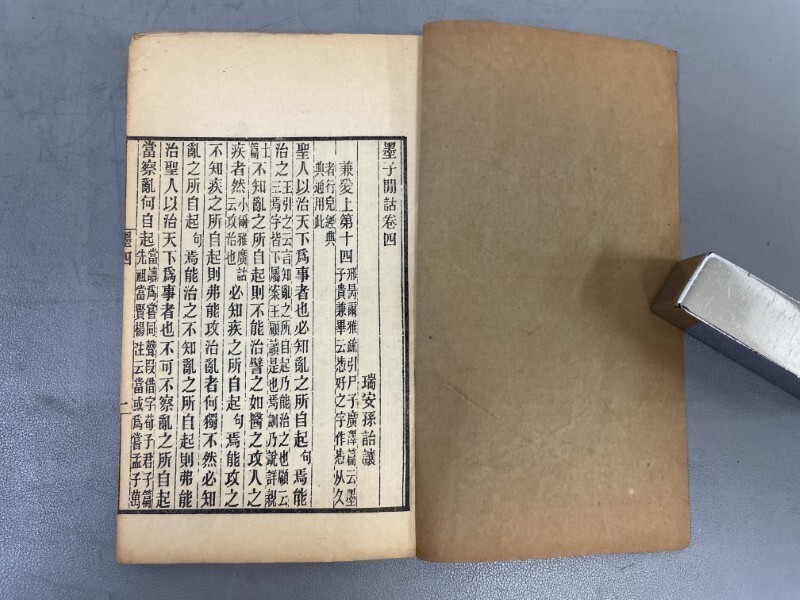 墨子閒詁卷四
瑞安孫詒讓
兼愛上第十四邢昺爾雅疏引尸子廣澤篇云墨子貴兼畢云㤅好之字作㤅从久
者行皃經典典通用此
聖人以治天下爲事者也必知亂之所自起句焉能
治之王引之云言知亂之所自起乃能治之也顧云三焉字皆下屬案王顧讀是也焉訓乃說詳親
士篇不知亂之所自起則不能治譬之如醫之攻人之
疾者然小爾雅廣詁云攻治也必知疾之所自起句焉能攻之
不知疾之所自起則弗能攻治亂者何獨不然必知
亂之所自起句焉能治之不知亂之所自起則弗能
治聖人以治天下爲事者也不可不察亂之所自起
當察亂何自起當讀爲嘗同聲叚借字荀子君子篇先祖當賢楊注云當或爲嘗孟子萬
墨四
一